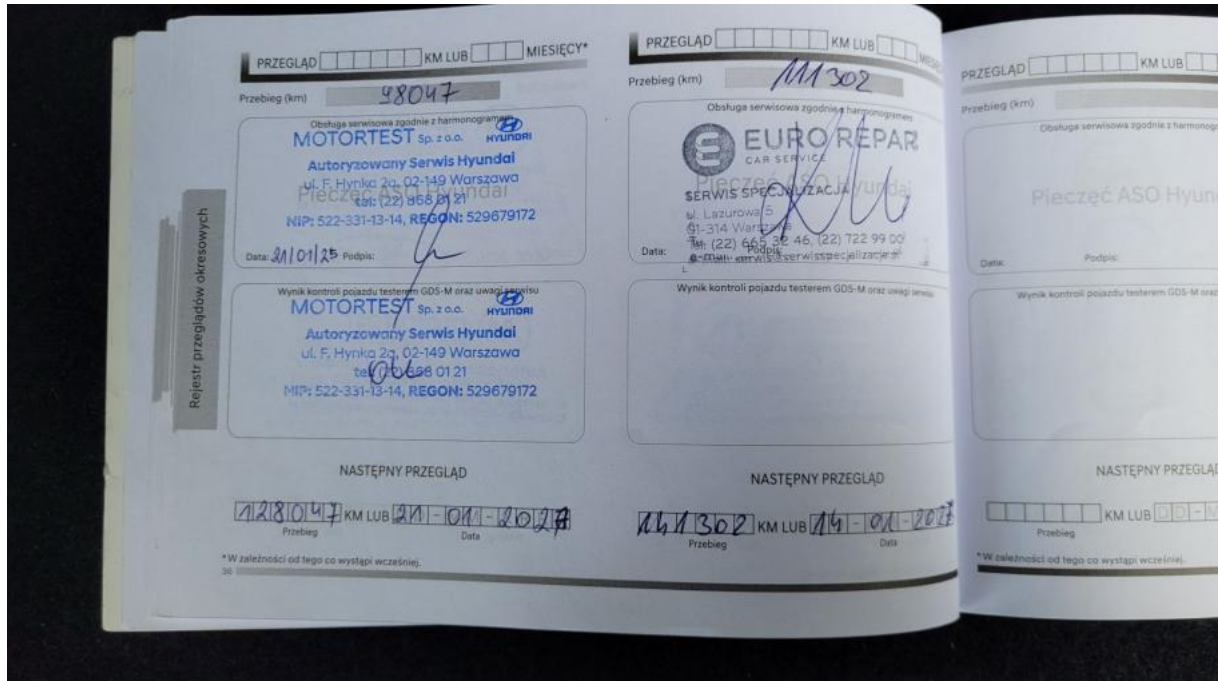 PRZEGLĄD KM LUB MIESIĘCY*
Przebieg (km) 98047
Obsługa serwisowa zgodnie z harmonogramem
MOTORTEST Sp. z o.o. HYUNDAI
Autoryzowany Serwis Hyundai
ul. F. Hynka 2a, 02-149 Warszawa
Pieczęć ASO Hyundai
tel: (22) 868 01 21
NIP: 522-331-13-14, REGON: 529679172
Data: 21/01/25 Podpis:
Wynik kontroli pojazdu testerem GDS-M oraz uwagi serwisu
MOTORTEST Sp. z o.o. HYUNDAI
Autoryzowany Serwis Hyundai
ul. F. Hynka 2a, 02-149 Warszawa
tel: (22) 868 01 21
NIP: 522-331-13-14, REGON: 529679172
NASTĘPNY PRZEGLĄD
128047 KM LUB 21-01-2027
Przebieg Data
*W zależności od tego co wystąpi wcześniej.
36
Rejestr przeglądów okresowych
PRZEGLĄD KM LUB
Przebieg (km) 111302
Obsługa serwisowa zgodnie z harmonogramem
EURO REPAR
CAR SERVICE
Pieczęć ASO Hyundai
SERWIS SPECJALIZACJA
ul. Lazurowa 5
01-314 Warszawa
Tel: (22) 665 32 46, (22) 722 99 00
Data: Podpis:
Wynik kontroli pojazdu testerem GDS-M oraz uwagi serwisu
NASTĘPNY PRZEGLĄD
141302 KM LUB 14-01-2027
Przebieg Data
PRZEGLĄD KM LUB
Przebieg (km)
Obsługa serwisowa zgodnie z harmonogr
Pieczęć ASO Hyun
Data: Podpis:
Wynik kontroli pojazdu testerem GDS-M oraz
NASTĘPNY PRZEGLĄ
KM LUB DD-M
Przebieg
*W zależności od tego co wystąpi wcześniej.